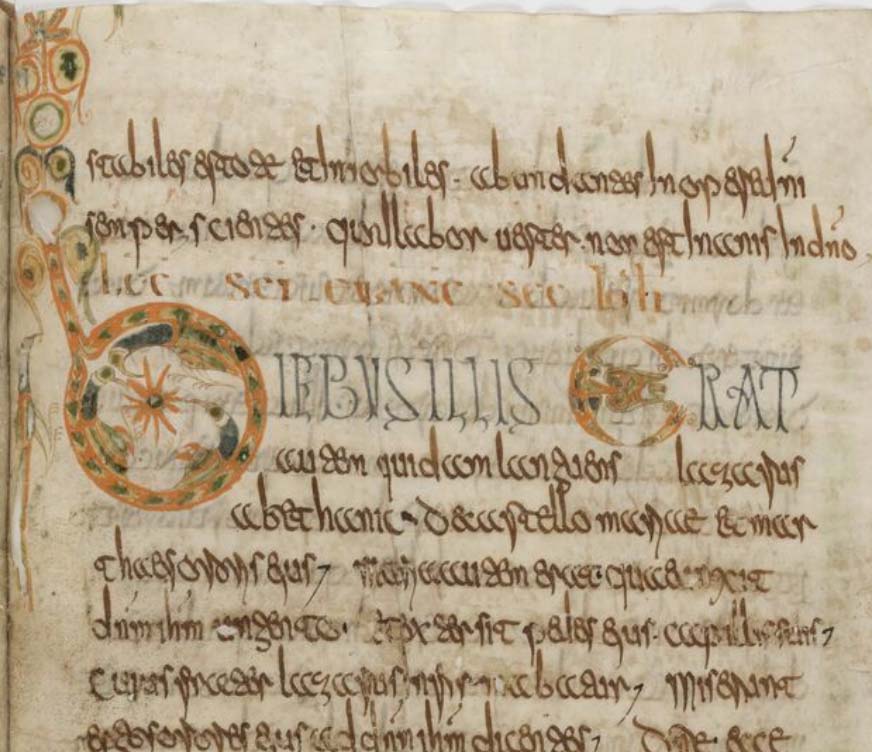 stabiles estote et inmobiles. abundantes in opere dni
semper scientes. quod labor uester. non est inanis in dno.
LEC SCI EUANG SEC IOH
DIEBUS ILLIS ERAT
autem quidam languens lazarus
a bethania. de castello mariae et mar
thae sororis eius; maria autem erat quae unxit
dnm ihm unguento. et extersit pedes eius. capillis suis;
cuius frater lazarus infirmabatur; Miserunt
ergo sorores eius ad dnm ihm dicentes; Dne ecce